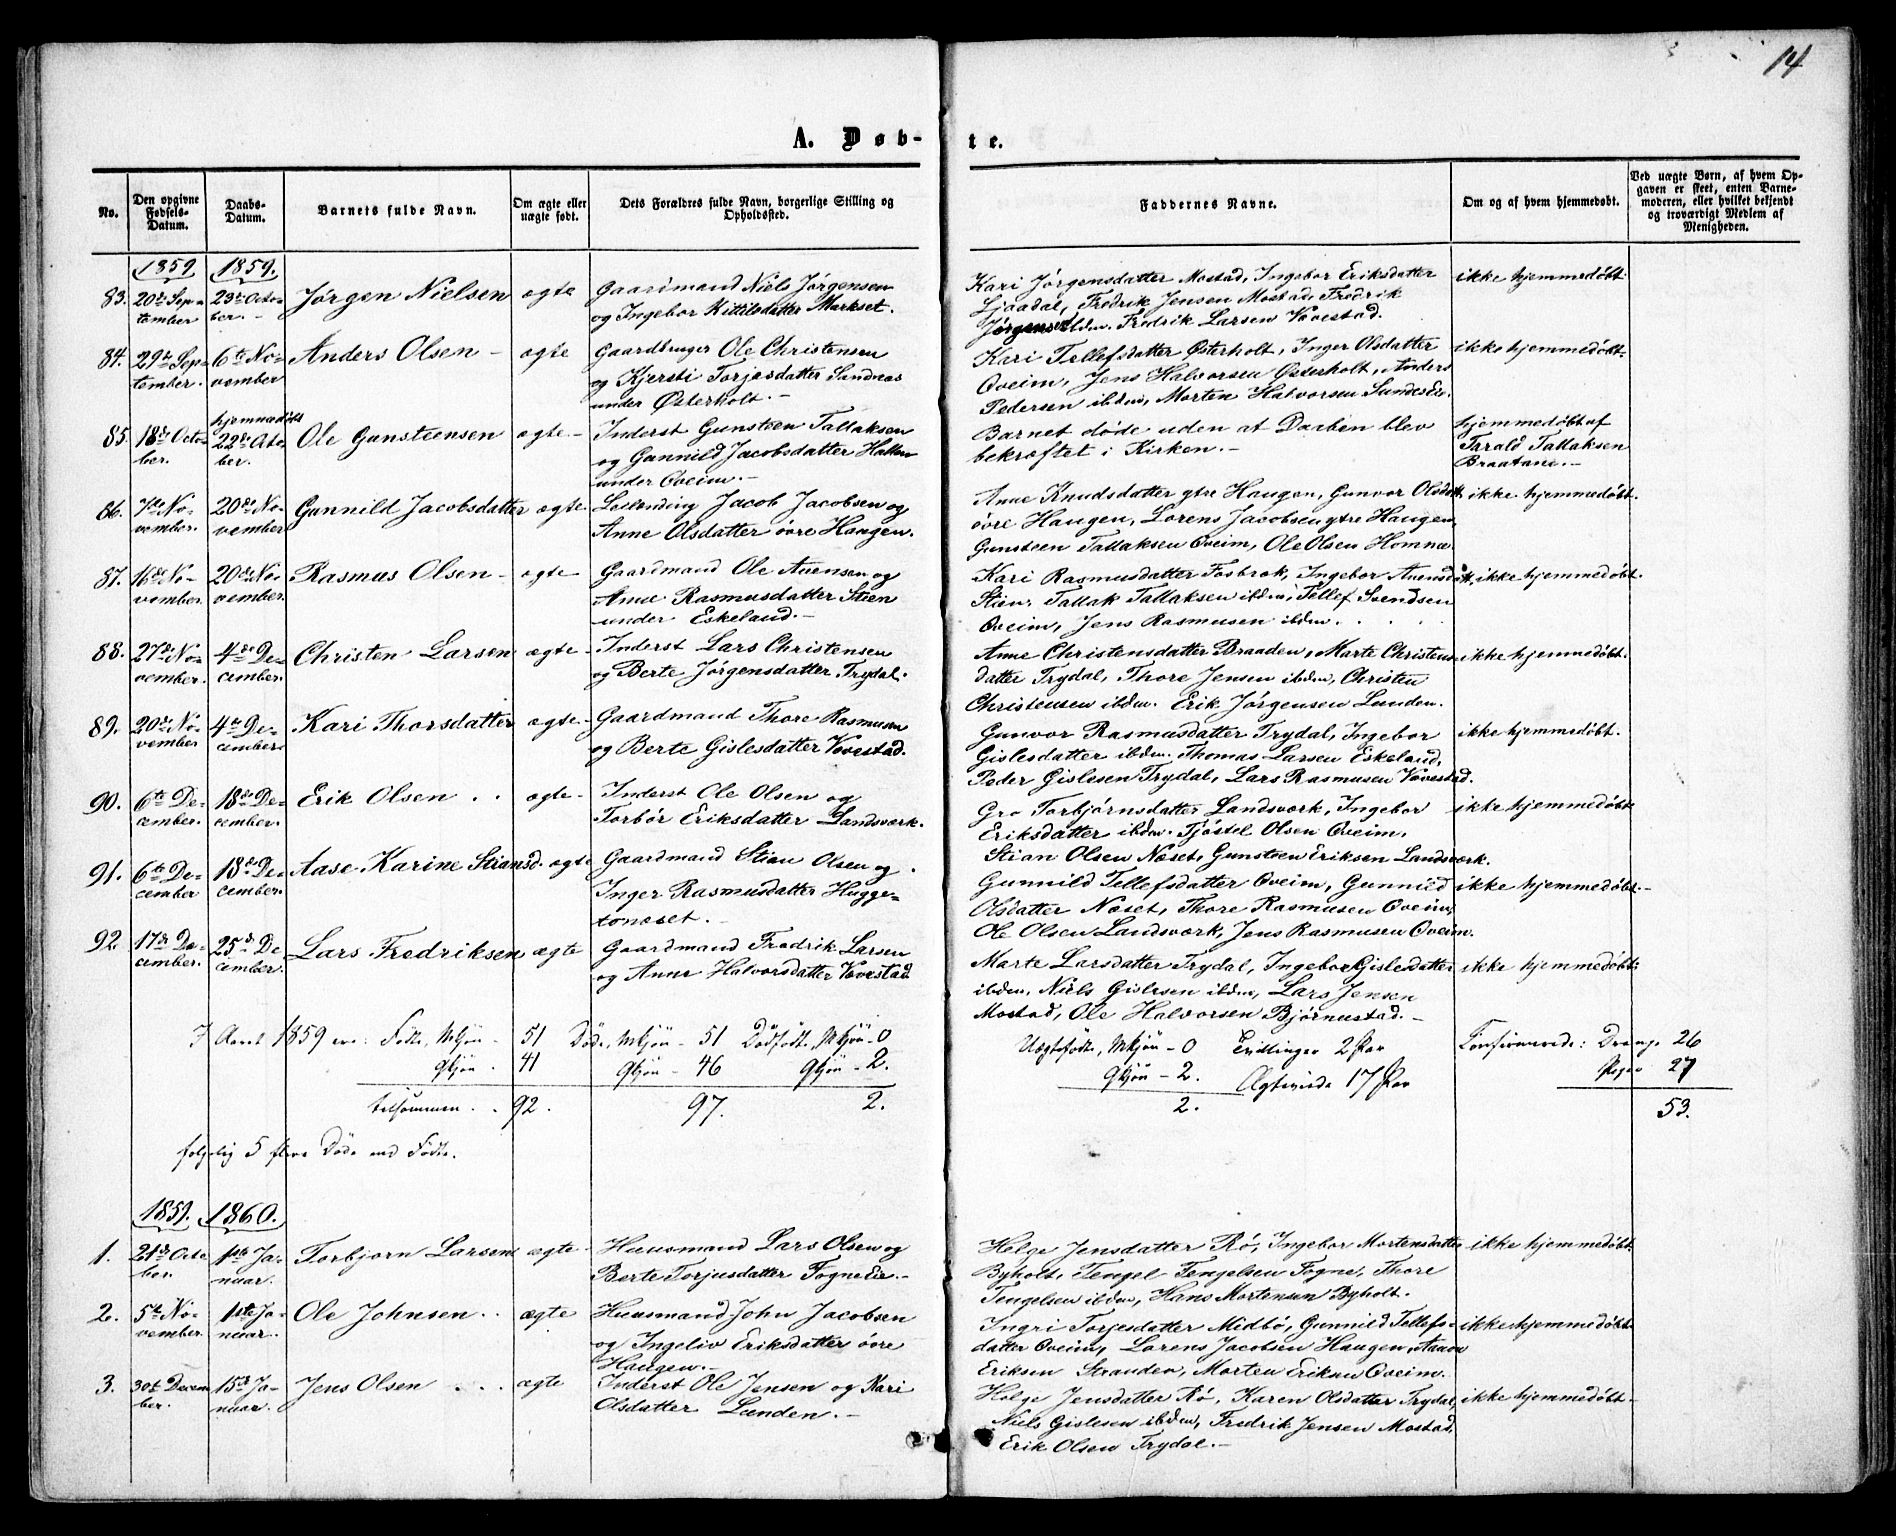 14
A. Døb-te.
No.
Den opgivne Fødsels-Datum.
Daabs-Datum.
Barnets fulde Navn.
Om ægte eller uægte født.
Dets Forældres fulde Navn, borgerlige Stilling og Opholdssted.
Faddernes Navne.
Om og af hvem hjemmedøbt.
Ved uægte Børn, af hvem Opgaven er skeet, enten Barnemoderen, eller hvilket bekjendt og troværdigt Medlem af Menigheden.
1859 1859.
83. 20de September 23de October. Jørgen Nielsen ægte
Gaardmand Niels Jørgensen
og Ingebor Kittilsdatter Markset.
Kari Jørgensdatter Mostad, Ingebor Eriksdatter
Ljaadal, Fredrik Jensen Mostad, Fredrik
Jørgensen ibdm. Fredrik Larsen Vovestad.
ikke hjemmedøbt.
84. 29de September. 6te November Anders Olsen - ægte
Gaardbruger Ole Christensen
og Kjersti Torjesdatter Sandnæs
under Østerholt. -
Kari Tellefsdatter Østerholt, Inger Olsdatter
Oveim, Jens Halvorsen Østerholt, Anders
Pedersen ibdm, Morten Halvorsen SundsEie.
ikke hjemmedøbt.
85. 18de October. hjemmedøbt 22de October. Ole Gunsteensen ægte -
Inderst Gunsteen Tallaksen
og Gunnild Jacobsdatter Hallen
under Oveim. -
Barnet døde uden at Daaben blev
bekræftet i Kirken. -
hjemmedøbt af
Tarald Tallaksen
Braatane. -
86. 7de November. 20de November Gunnild Jacobsdatter ægte
Leilending Jacob Jacobsen og
Anne Olsdatter øvre Haugen.
Anne Knudsdatter ytre Haugen, Gunvor Olsdatt.
øvre Haugen, Lorens Jacobsen ytre Haugen
Gunsteen Tallaksen Oveim, Ole Olsen Homnæ.
ikke hjemmedøbt.
87. 16de November. 20de November. Rasmus Olsen - ægte
Gaardmand Ole Auensen og
Anne Rasmusdatter Stien
under Eskeland. -
Kari Rasmusdatter Fosbrok, Ingebor Auensdatt.
Stien. Tallak Tallaksen ibdm, Tellef Svendsen
Oveim, Jens Rasmusen ibdm.
ikke hjemmedøbt.
88. 27de November. 4de December. Christen Larsen ægte -
Inderst Lars Christensen
og Berte Jørgensdatter Trydal.
Anne Christensdatter Braaden, Marte Christens-
datter Trydal, Thore Jensen ibdm, Christen
Christensen ibdm. Erik Jørgensen Lunden.
ikke hjemmedøbt.
89. 20de November 4de December. Kari Thorsdatter ægte -
Gaardmand Thore Rasmusen
og Berte Gislesdatter Vovestad.
Gunvor Rasmusdatter Trydal, Ingebor
Gislesdatter ibdm. Thomas Larsen Eskeland,
Peder Gislesen Trydal, Lars Rasmusen Vovestad.
ikke hjemmedøbt.
90. 6te December. 18de December. Erik Olsen . . ægte -
Inderst Ole Olsen og
Torbør Eriksdatter Landsværk.
Gro Torbjørnsdatter Landsværk, Ingebor
Eriksdatter ibdm. Tjøstel Olsen Oveim,
Stian Olsen Næset, Gunsteen Eriksen Landsværk.
ikke hjemmedøbt
91. 6te December 18de December. Aase Karine Stiansd. ægte
Gaardmand Stian Olsen og
Inger Rasmusdatter Hugge-
tonæset. -
Gunnild Tellefsdatter Oveim, Gunnild
Olsdatter Næset, Thore Rasmusen Oveim,
Ole Olsen Landsværk, Jens Rasmusen Oveim.
ikke hjemmedøbt. -
92. 17de December. 25de December. Lars Fredriksen ægte
Gaardmand Fredrik Larsen
og Anne Halvorsdatter Vovestad
Marte Larsdatter Trydal, Ingebor Gislesdatter
ibdm, Niels Gislesen ibdm, Lars Jensen
Mostad, Ole Halvorsen Bjørnustad. -
ikke hjemmedøbt.
I Aaret 1859 ere: Fødte, Mkjön - 51 Döde, Mkjön - 51 Dödfödte, Mkjön - 0 Uægtefødte, Mkjön - 0 Tvillinger 2 Par Confirmerede: Drenge 26
Qkjön . 41 Qkjön - 46 Qkjön - 2. Qkjön - 2. Ægteviede 17 Par Piger 27
tilsammen . . 92. 97. 2. 2. 53.
følgelig 5 flere Döde end Födte.
1859. 1860.
1. 21de October. 1ste Januar. Torbjørn Larsen ægte -
Huusmand Lars Olsen og
Berte Torjusdatter FogneEie. -
Helge Jensdatter Rø, Ingebor Mortensdatter
Byholt, Tengel Tengelsen Fogne, Thore
Tengelsen ibdm, Hans Mortensen Byholt.
ikke hjemmedøbt.
2. 5te November. 1ste Januar. Ole Johnsen . . ægte
Huusmand John Jacobsen
og Ingeliv Eriksdatter øvre
Haugen. -
Ingri Torjesdatter Midbø, Gunnild Tellefs-
datter Oveim, Lorens Jacobsen Haugen, Aanon
Eriksen Stranden, Morten Eriksen Oveim.
ikke hjemmedøbt
3. 30te December. 15de Januar. Jens Olsen . . . ægte
Inderst Ole Jensen og Kari
Olsdatter Lunden. -
Helge Jensdatter Rø, Karen Olsdatter Trydal,
Niels Gislesen ibdm, Fredrik Jensen Mostad,
Erik Olsen Trydal. -
ikke hjemmedøbt -